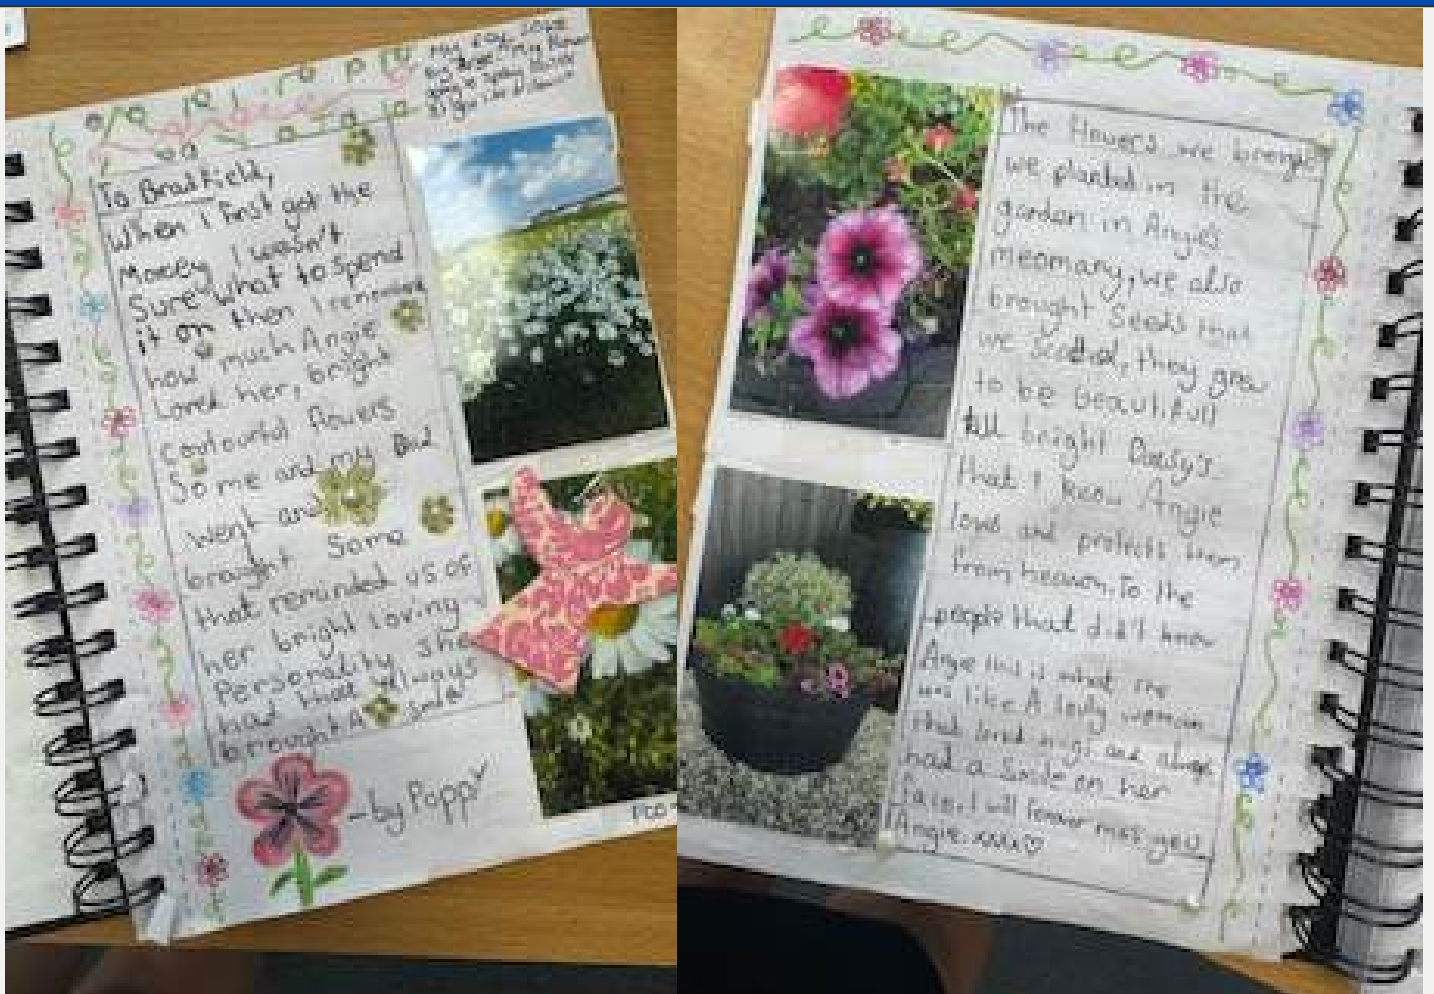 To Bradfield,
When I first got the
Money I wasn't
Sure what to spend
it on then I remember
how much Angie
Loved her, bright
colourful flowers
So me and my Dad
went and
brought Some
that reminded us of
her bright loving
Personality she
had that always
brought A smile
-by Poppy
The flowers we brought
we planted in the
garden in Angie's
meomary, we also
brought Seeds that
we scatted, they grew
to be beautifull
tall bright Daisy's
that I know Angie
loves and protects them
from heaven. To the
people that didn't know
Angie this is what she
was like A lovly woman
that loved hugs and always
had a Smile on her
face. I will forever miss you
Angie. xxxx♡